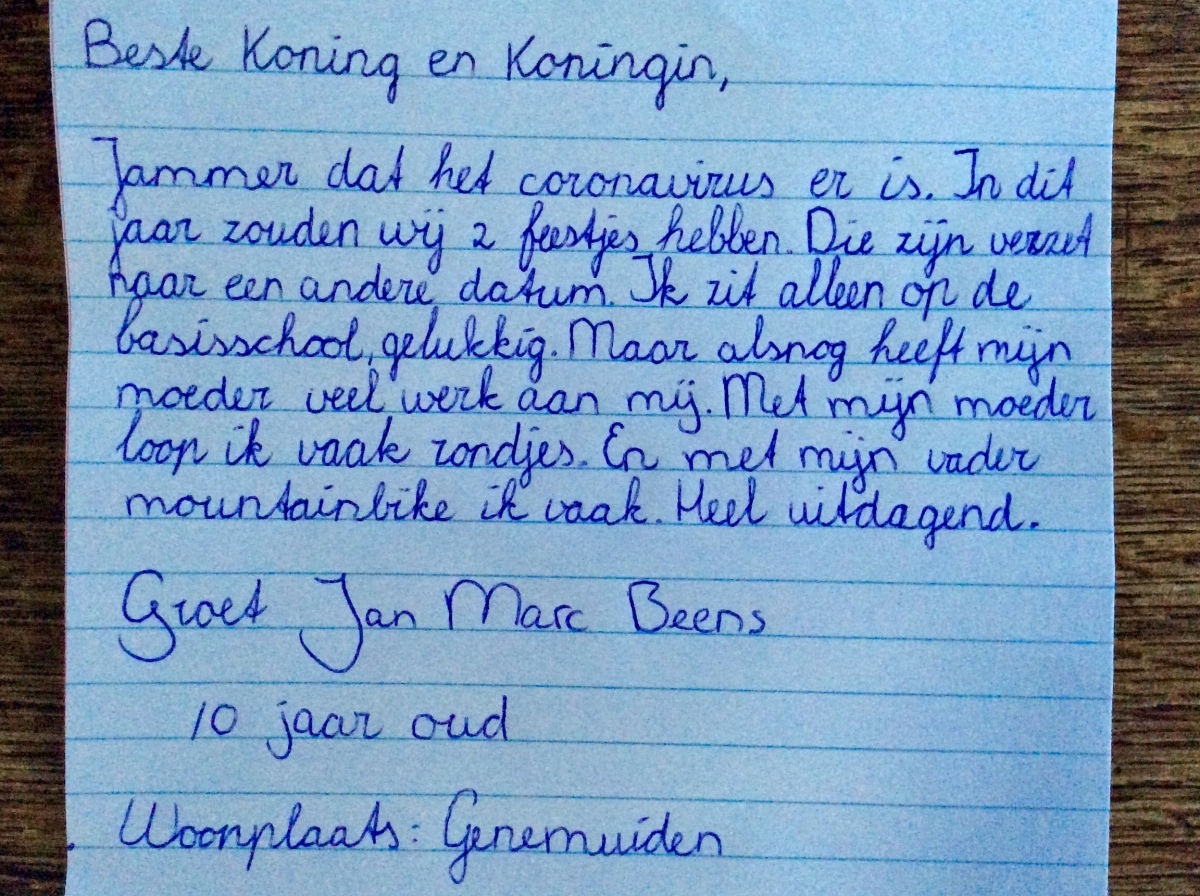 Beste Koning en Koningin,
Jammer dat het coronavirus er is. In dit
jaar zouden wij 2 feestjes hebben. Die zijn verzet
naar een andere datum. Ik zit alleen op de
basisschool, gelukkig. Maar alsnog heeft mijn
moeder veel werk aan mij. Met mijn moeder
loop ik vaak rondjes. En met mijn vader
mountainbike ik vaak. Heel uitdagend.
Groet Jan Marc Beens
10 jaar oud
Woonplaats: Genemuiden